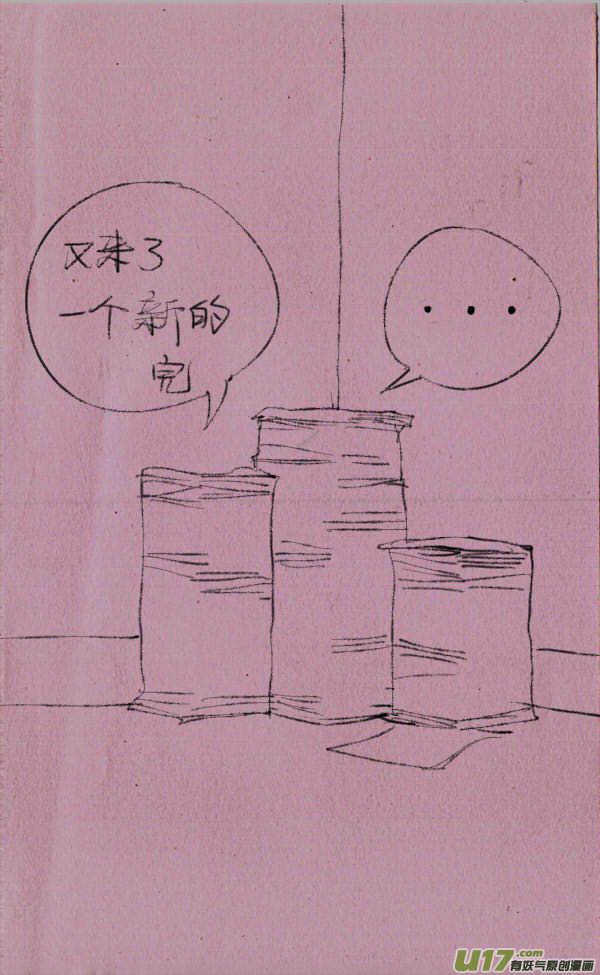 又来了
一个新的
完
...
U17.com
有妖气原创漫画